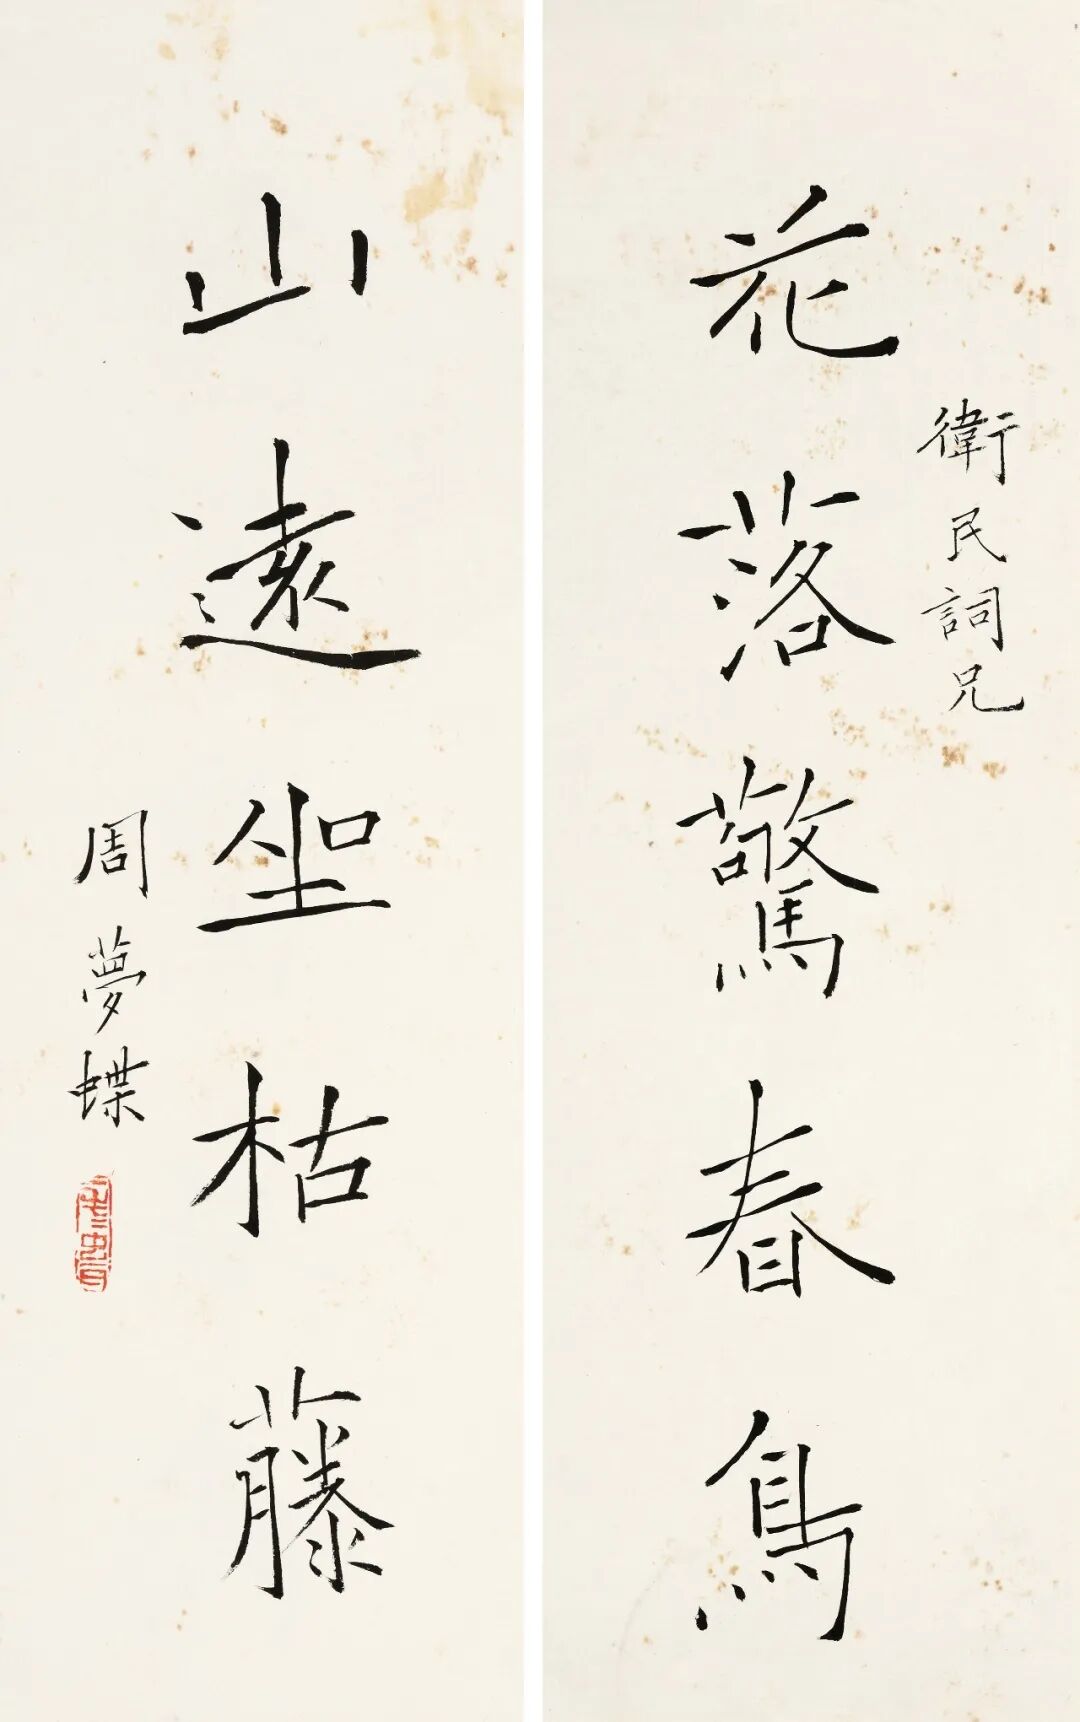 花落驚春鳥
衛民詞兄
山遠坐枯藤
周夢蝶